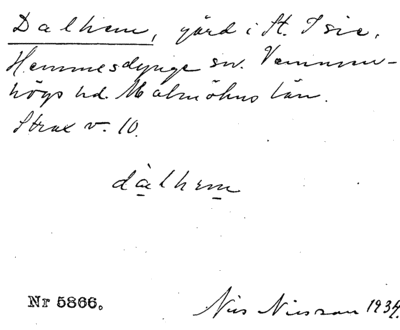 Dalhem, gård i St. Isie,
Hemmesdynge sn. Vemmen-
högs hd. Malmöhus län.
Strax v. 10.
dàlhem
Nr 5866.
Nils Nilsson 1934.